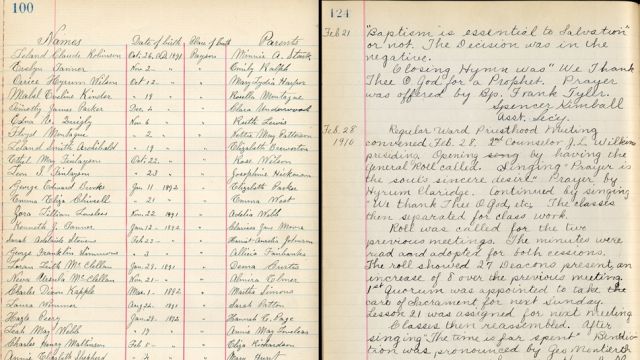 100
Names Date of birth Place of Birth Parents
Leland Claude Robinson Oct. 26, 1891 Payson Minnie A. Stark
Evelyn Tanner Nov 2 " " Emily Ralph
Orrice Hyrum Wilson Oct 12 " " Mary Lydia Harper
Mabel Eveline Kinder " 19 " " Rosetta Montague
Timothy James Parker Dec. 4 " " Clara Underwood
Edna Quigly Nov 6 " " Ruth Lewis
Floyd Montague " 2 " " Nettie May Patterson
Leland Smith Archibald " 19 " " Elizabeth
Ethel May Finlayson Oct. 22 " " Rose Wilson
Leon J. Finlayson " 23 " " Josephine Hickman
George Edward Danks Jan 11 1892 " Elizabeth Parker
Emma Eliza " 21 " " Emma West
Zora Lillian Loveless Nov. 22 1891 " Adelia Webb
Kenneth J. Tanner Jan 13 1892 " Jane Moore
Sarah Adelaide Stevens Feb 22 " " Harriet Amelia Johnson
George Franklin Simmons " 3 " " Fairbanks
Loran Keith McClellan Jan. 29, 1891 " Deena Curtis
Neva McClellan Nov. 21 " " Almira Elmer
Charles Dixon Kapple Mar. 1 1892 " Martha Simons
Laura Wimmer Aug 26 1891 " Sarah Patten
Hazle Peery Jan. 28 1892 " Hannah C. Page
Leah May Webb " 19 " " Annie May Loveless
Charles Henry Mathison Feb 8 " " Eliza Richardson
Annie Elizabeth Shepherd " 4 " " Mary Hunt
124
Feb 21 "Baptism is essential to Salvation"
or not. The Decision was in the
negative.
Closing Hymn was "We Thank
Thee O God for a Prophet. Prayer
was offered by Bp. Frank Tyler.
Spencer Kimball
Asst. Sec'y.
Feb. 28 Regular Ward Priesthood meeting
1910 convened Feb. 28. 2nd Counselor J. L. Wilkins
presiding Opening song by having the
General Roll called. Singing "Prayer is
the soul's sincere desire" Prayer by
Hyrum Claridge. Continued by singing
"We thank Thee O God, etc. The classes
then separated for class work.
Roll was called for the two
previous meetings. The minutes were
read and adopted for both cessions.
The roll showed 27 Deacons present, an
increase of 8 over the previous meeting.
1st Quorum was appointed to take the
care of Sacrament for next Sunday.
Lesson 21 was assigned for next meeting
Classes then reassembled. After
singing "The time is far spent" Benedic-
tion was pronounced by Geo